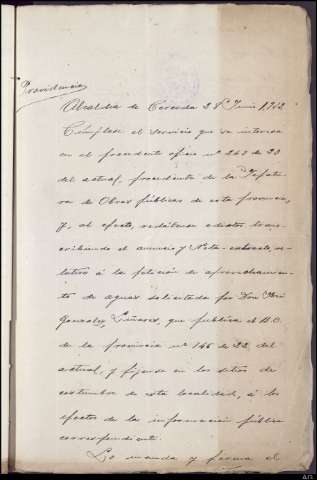 Providencia
Alcaldía de Cerceda 28 Junio 1912
Cúmplase el servicio que se interesa
en el precedente oficio nº 263 de 23
del actual, procedente de la Jefatu-
ra de Obras públicas de esta provincia,
y, al efecto, redáctense edictos trans-
cribiendo el anuncio y Nota-extracto, re-
lativo á la petición de aprovechamien-
to de aguas solicitada por Don José
Gonzalez Liñares, que publica el B.O.
de la provincia nº 146 de 22 del
actual, y fíjense en los sitios de
costumbre de esta localidad, á los
efectos de la información pública
correspondiente.
Lo manda y firma el